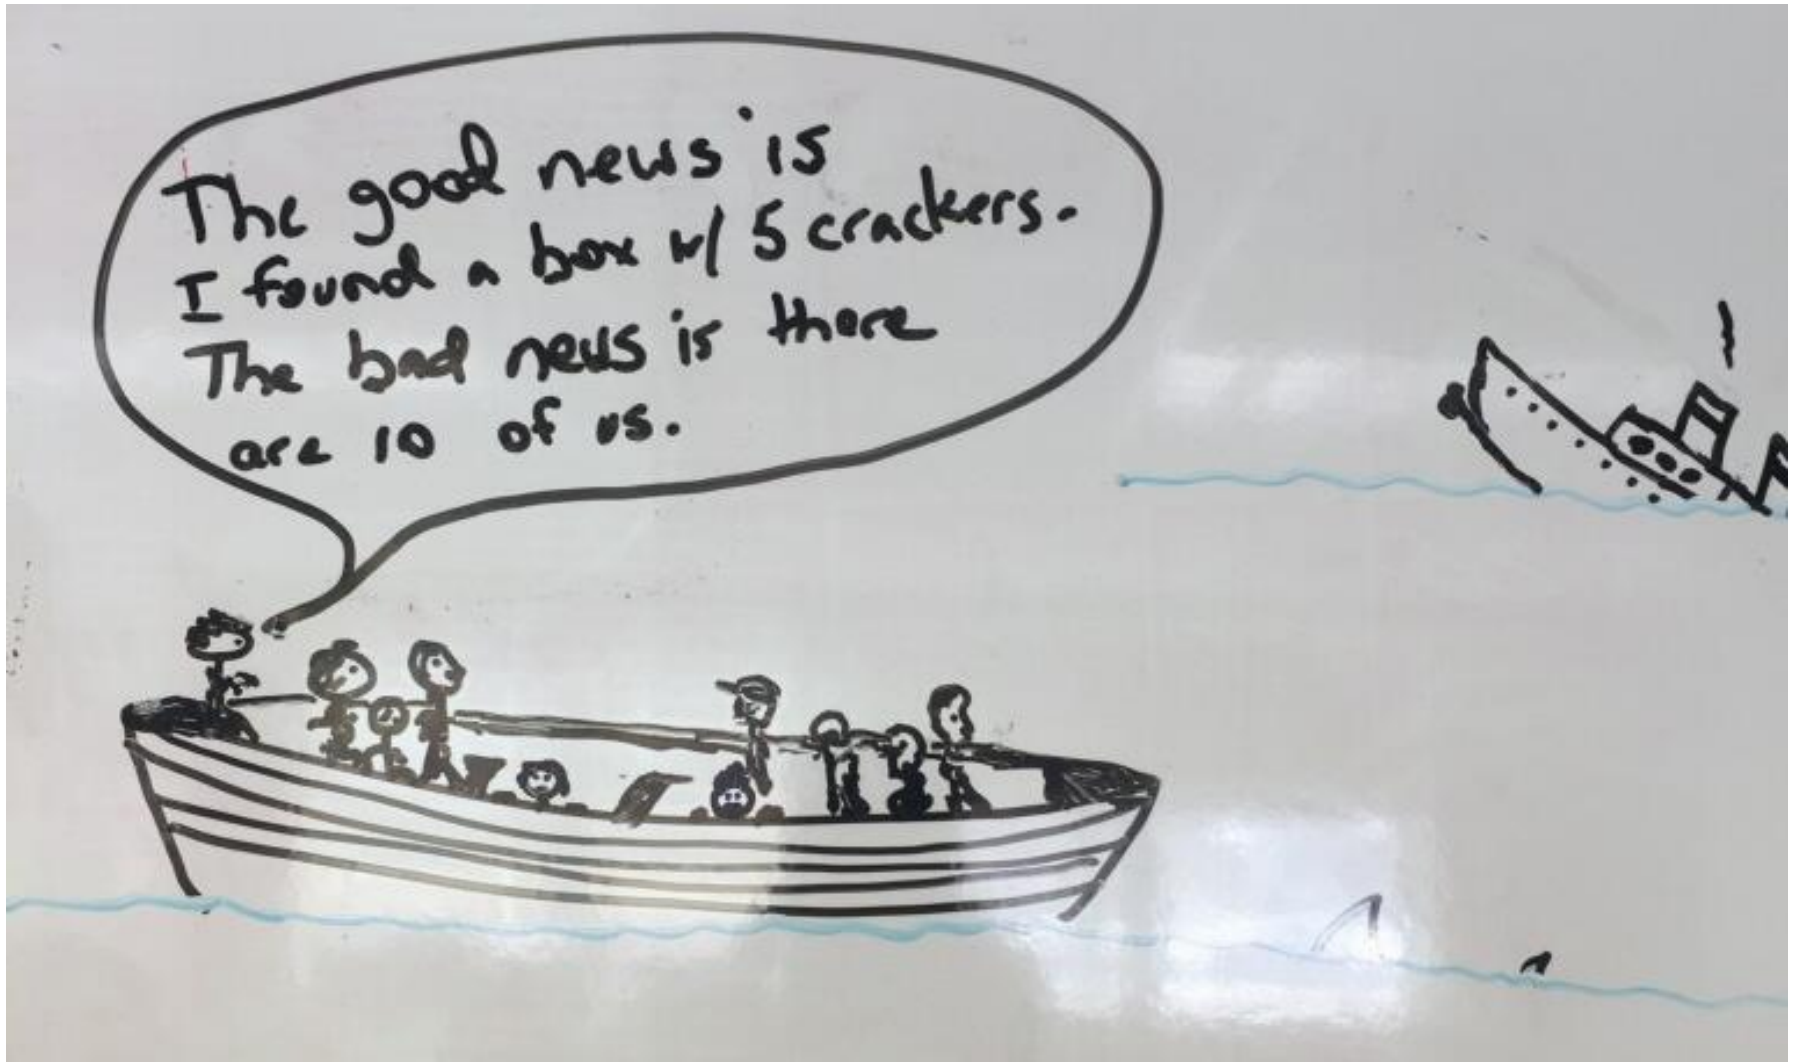 The good news is
I found a box w/ 5 crackers.
The bad news is there
are 10 of us.